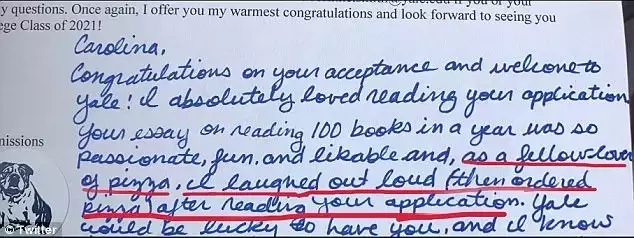 y questions. Once again, I offer you my warmest congratulations and look forward to seeing you
ege Class of 2021!
Carolina,
Congratulations on your acceptance and welcome to
Yale! I absolutely loved reading your application.
Your essay on reading 100 books in a year was so
passionate, fun, and likable and, as a fellow lover
of pizza, I laughed out loud (then ordered
pizza) after reading your application. Yale
would be lucky to have you, and I know
nissions
© Twitter